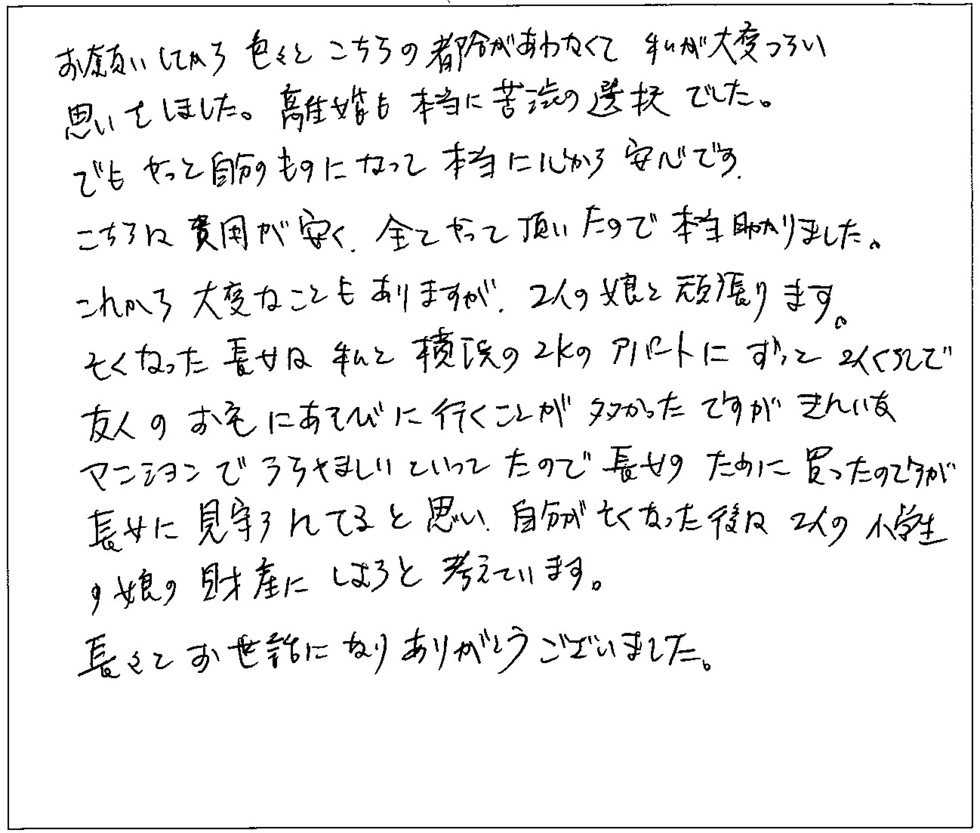 お願いしてから色々とこちらの都合があわなくて私が大変つらい
思いをしました。離婚も本当に苦渋の選択でした。
でもやっと自分のものになって本当に心から安心です.
こちらは費用が安く、全てやって頂いたので本当助かりました。
これから大変なこともありますが、2人の娘と頑張ります。
亡くなった長女は私と横浜の2Kのアパートにずっと2人ぐらしで
友人のお宅にあそびに行くことが多かったですがきれいな
マンションでうらやましいといってたので長女のために買ったのですが
長女に見守られてると思い、自分が亡くなった後は2人の小学生
の娘の財産にしようと考えています。
長々とお世話になりありがとうございました。